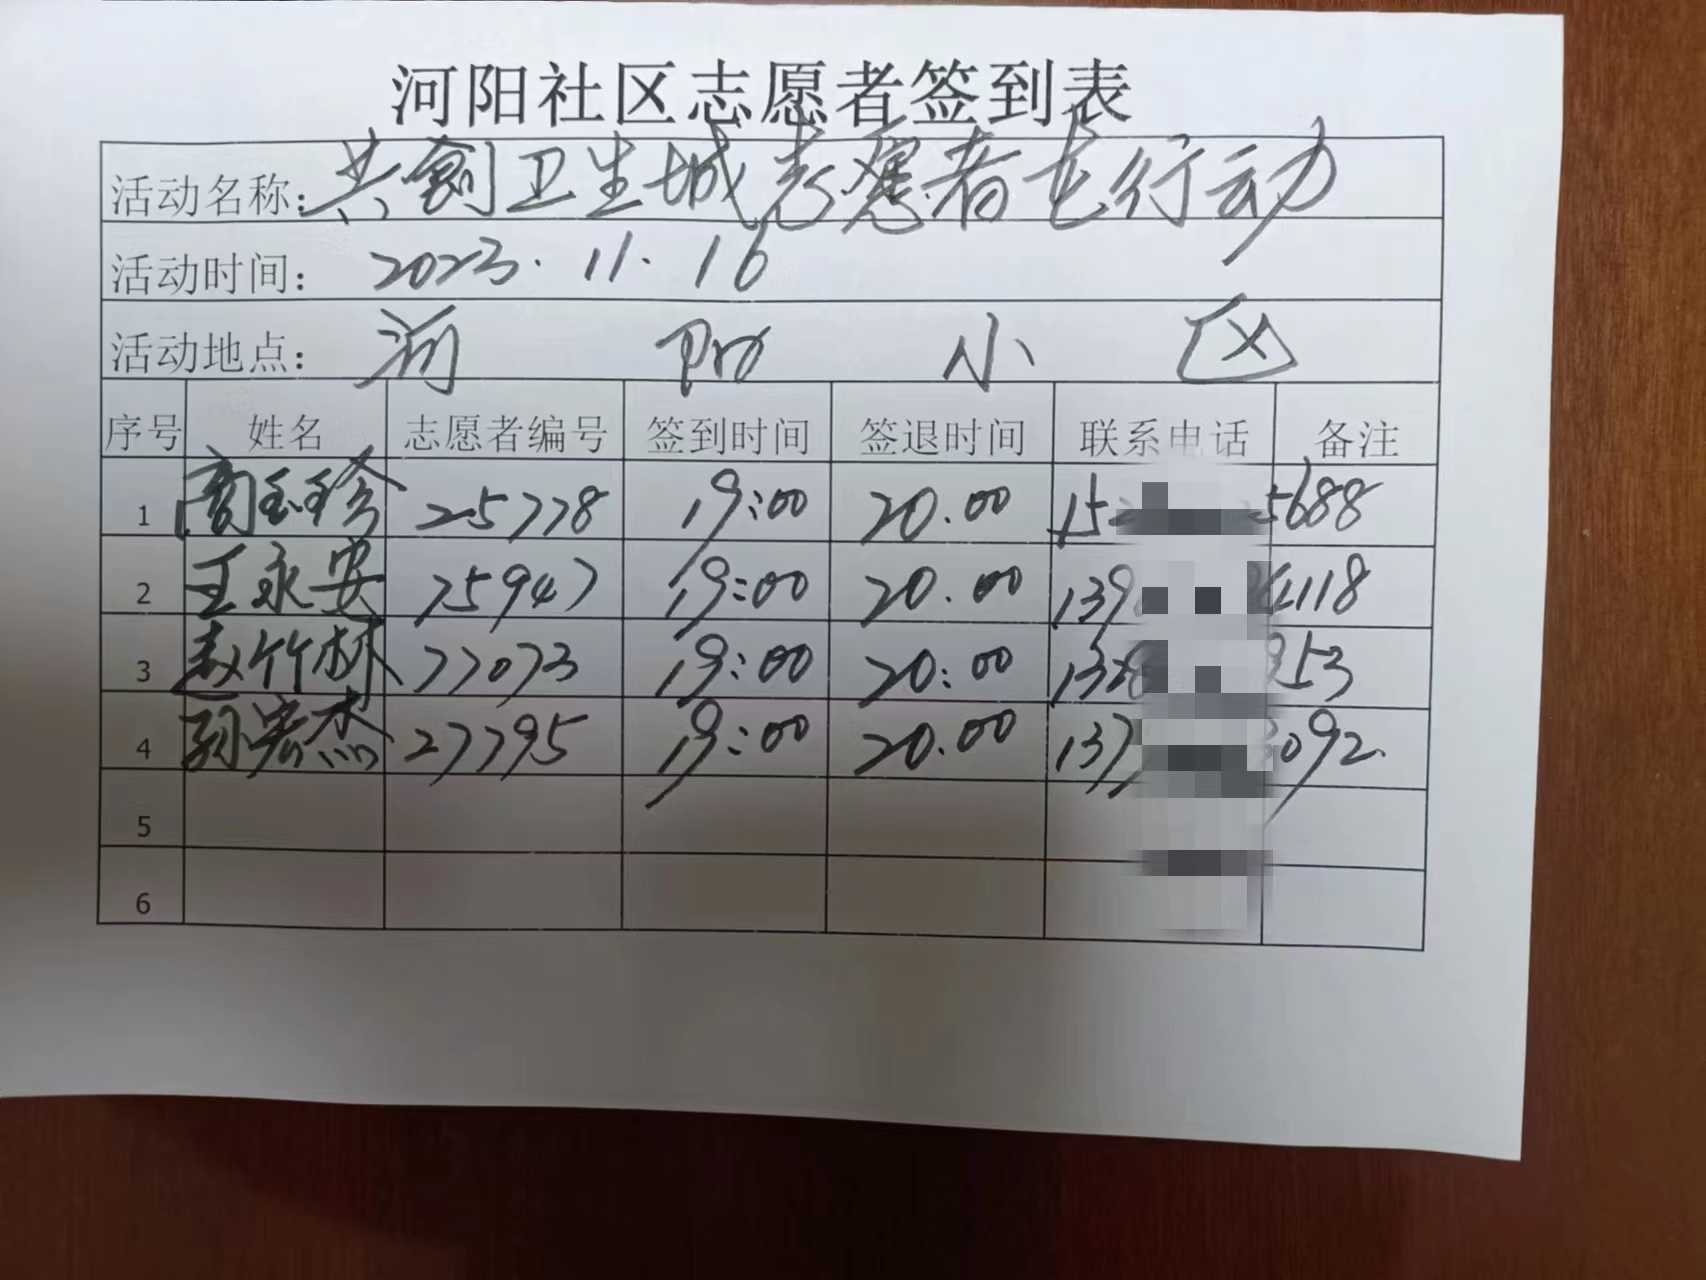 河阳社区志愿者签到表
活动名称：共创卫生城志愿者飞行动
活动时间：2023.11.16
活动地点：河阳小区
序号 姓名 志愿者编号 签到时间 签退时间 联系电话 备注
1 周玉珍 25778 19:00 20.00 15 5688
2 王永安 75947 19:00 20.00 139 4118
3 赵竹林 77073 19:00 20:00 138 953
4 孙宏杰 27795 19:00 20.00 137 3092.
5
6